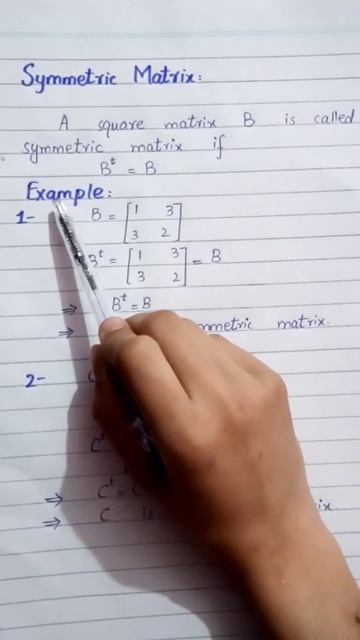 Symmetric Matrix:
A square matrix B is called
symmetric matrix if
Bᵗ = B
Example:
1- B = [1 3
3 2]
Bᵗ = [1 3
3 2] = B
⇒ Bᵗ = B
⇒ matrix.
2-
Cᵗ
⇒ Cᵗ =
⇒ C is